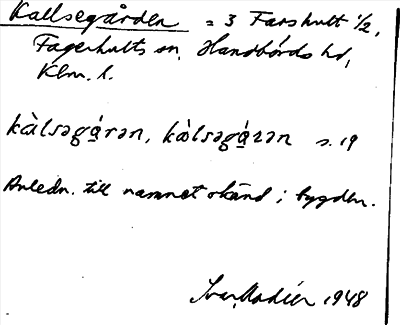 Kallsegården = 3 Farshult 1/2,
Fagerhults sn, Handbörds hd,
Klm. l.
kàlsəgá̱rən, kə̀lsəgá̱rən s. 19
Anledn. till namnet okänd i bygden.
Ivar Modéer 1948